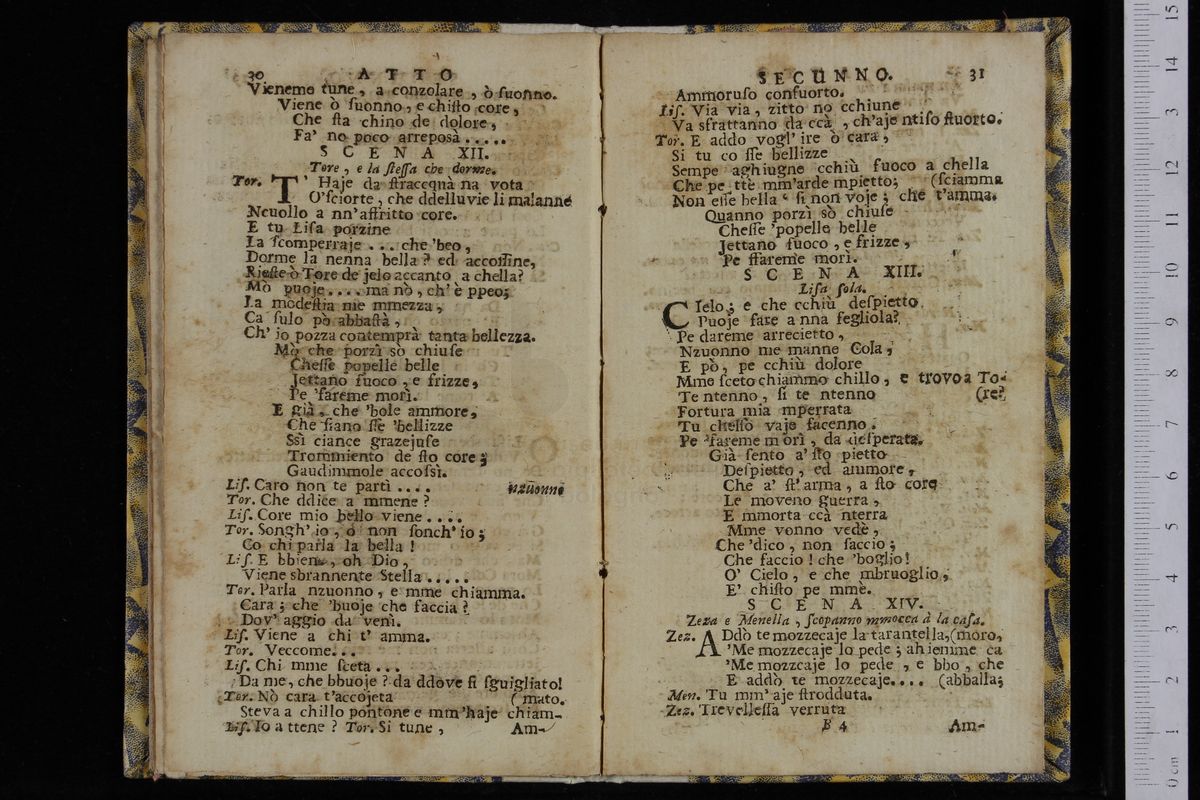 30 ATTO
Vienemo tune, a conzolare, ò suonno.
Viene ò suonno, e chisto core,
Che sta chino de dolore,
Fa' no poco arreposà.....
SCENA XII.
Tore, e la stessa che dorme.
Tor. T' Haje da stracequà na vota
O'sciorte, che ddelluvie li malanne
Ncuollo a nn'affritto core.
E tu Lisa porzine
La scomperraje ... che 'beo,
Dorme la nenna bella? ed accossine,
Rieste ò Tore de jelo accanto a chella?
Mò puoje.... ma nò, ch'è ppeo;
La modestia me mmezza,
Ca sulo pò abbastà,
Ch' io pozza contemprà tanta bellezza.
Mò che porzì sò chiuse
Chesse popelle belle
Jettano fuoco, e frizze,
Pe 'fareme morì.
E già, che 'bole ammore,
Che siano sse 'bellizze
Ssi ciance grazejuse
Trommiento de sto core;
Gaudimmole accossì.
Lis. Caro non te partì .... nzuonno
Tor. Che ddice a mmene?
Lis. Core mio bello viene....
Tor. Songh' io, o non sonch' io;
Co chi parla la bella!
Lis. E bbiene, oh Dio,
Viene sbrannente Stella.....
Tor. Parla nzuonno, e mme chiamma.
Cara; che 'buoje che faccia?
Dov' aggio da venì.
Lis. Viene a chi t' amma.
Tor. Veccome...
Lis. Chi mme sceta...
Da me, che bbuoje? da ddove si sguigliato!
Tor. Nò cara t'accojeta (mato.
Steva a chillo pontone e mm'haje chiam-
Lis. Io a ttene? Tor. Si tune, Am-
SECUNNO. 31
Ammoruso confuorto.
Lis. Via via, zitto no cchiune
Va sfrattanno da ccà, ch'aje ntiso stuorto.
Tor. E addo vogl' ire ò cara,
Si tu co sse bellizze
Sempe aghiugne cchiù fuoco a chella
Che pe ttè mm'arde mpietto; (sciamma
Non esse bella si non voje; che t'amma.
Quanno porzì sò chiuse
Chesse 'popelle belle
Jettano fuoco, e frizze,
Pe ffareme morì.
SCENA XIII.
Lisa sola.
CIelo; e che cchiù despietto
Puoje fare a nna fegliola?
Pe dareme arrecietto,
Nzuonno me manne Cola,
E pò, pe cchiù dolore
Mme sceto chiammo chillo, e trovo a To-
Te ntenno, si te ntenno (re?
Fortura mia mperrata
Tu chesso vaje facenno.
Pe 'fareme morì, da desperata.
Già sento a' sto pietto
Despietto, ed ammore,
Che a' st' arma, a sto core
Le moveno guerra,
E mmorta ccà nterra
Mme vonno vedè,
Che 'dico, non faccio;
Che faccio! che 'boglio!
O' Cielo, e che mbruoglio,
E' chisto pe mmè.
SCENA XIV.
Zeza e Menella, scopanno mmocca à la casa.
Zez. ADdò te mozzecaje la tarantella, (moro,
'Me mozzecaje lo pede; ahiemme ca
'Me mozzcaje lo pede, e bbo, che
E addò te mozzecaje.... (abballa;
Men. Tu mm' aje strodduta.
Zez. Trevellessa verruta
B 4 Am-